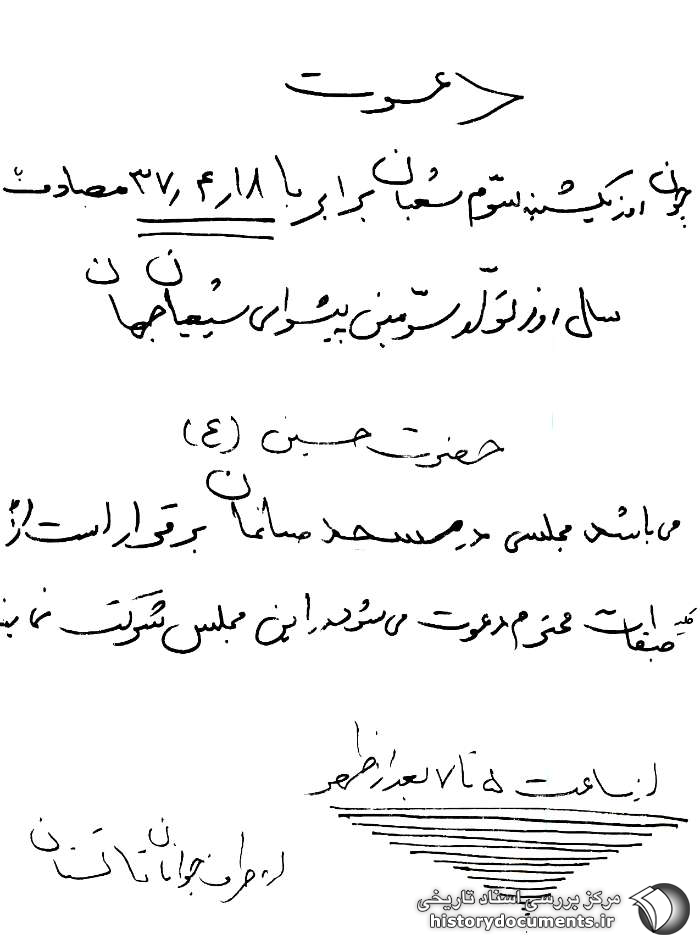 دعوت
چون روز یکشنبه سوّم شعبان برابر با ۳۷٫۴٫۱۸ مصادف
سال روز تولّد سوّمین پیشوای شیعیان جهان
حضرت حسین (ع)
می باشد مجلسی در مسجد برقرار است از
طبقات محترم دعوت می شود در این مجلس شرکت نمایند
از ساعت ۵ تا ۷ بعد از ظهر
از طرف جوانان
مرکز بررسی اسناد تاریخی
historydocuments.ir